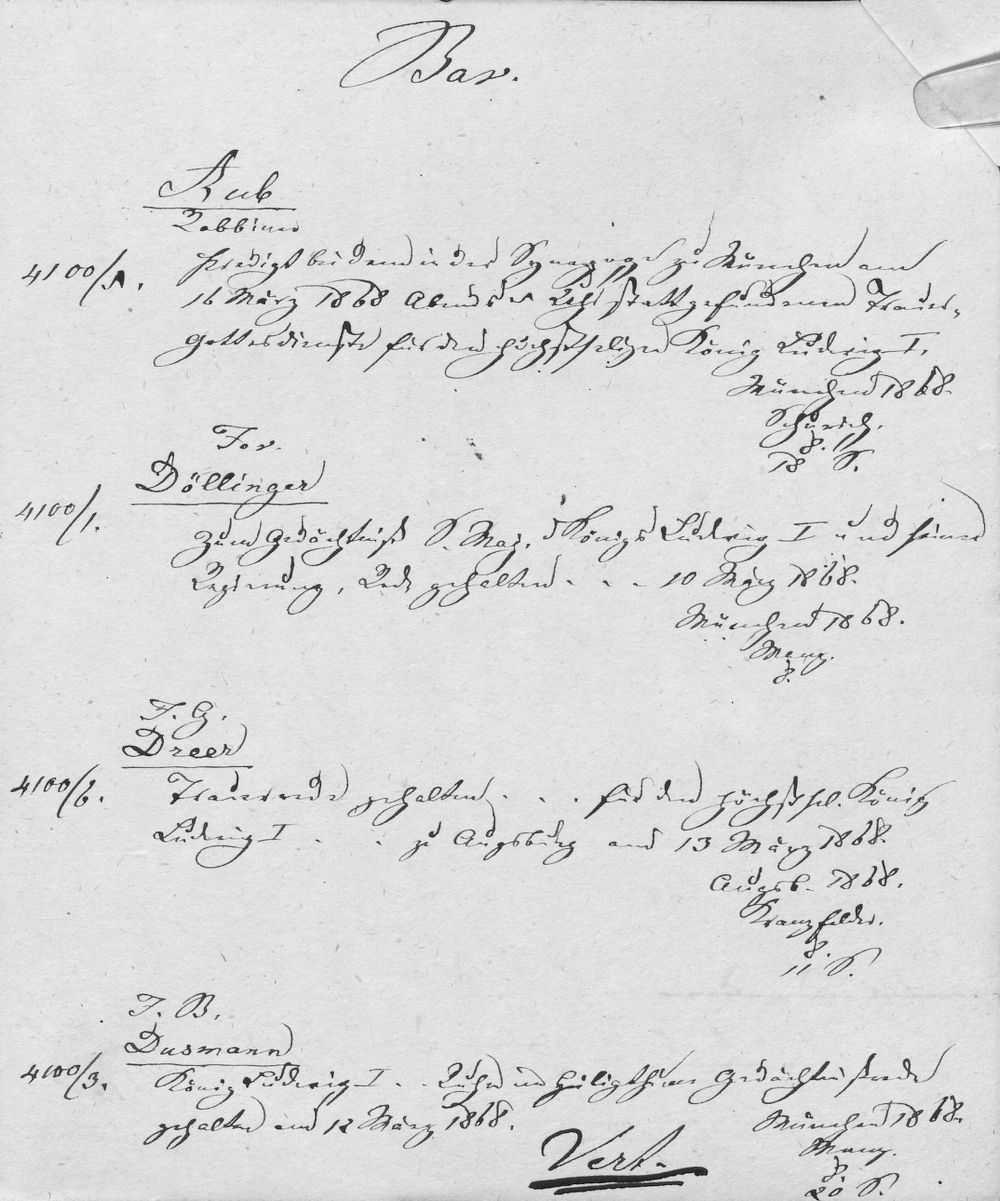 Bav.
Aub
Rabbiner
4100/
Predigt bei dem in der Synagoge zu München am
16 März 1868 Abends Uhr stattgefundenen Trauer-
gottesdienste für den höchstseligen König Ludwig I.
München 1868.
Schurich.
8.
18 S.
Jos.
Döllinger
4100/1.
Zum Gedächtniß S. Maj. d Königs Ludwig I und seiner
Regierung, Rede gehalten . . . 10 März 1868.
München 1868.
Manz.
8.
J. G.
Dreer
4100/6.
Trauerrede gehalten . . . für den höchstsel. König
Ludwig I . . zu Augsburg am 13 März 1868.
Augsb. 1868.
Kranzfelder.
8.
11 S.
J. B.
Dusmann
4100/3.
König Ludwig I . . Gedächtnißrede
gehalten am 12 März 1868.
München 1868.
Manz.
8.
20 S.
Vert.